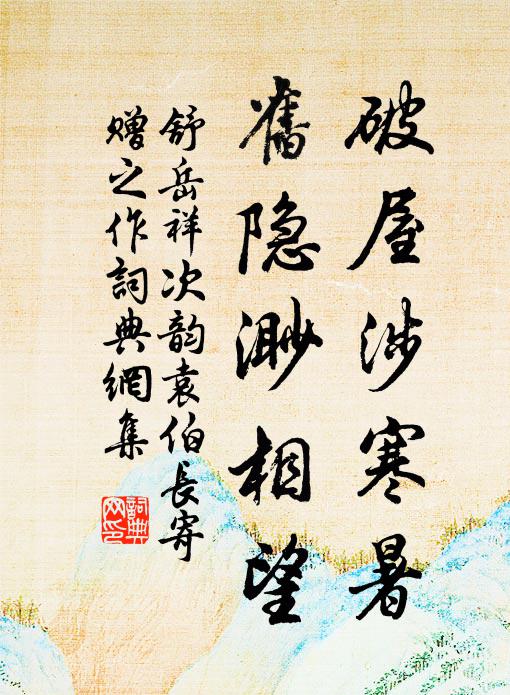 破屋涉寒暑
舊隐渺相望
舒岳祥次韵袁伯長寄
赠之作詞典網集
詞典网印